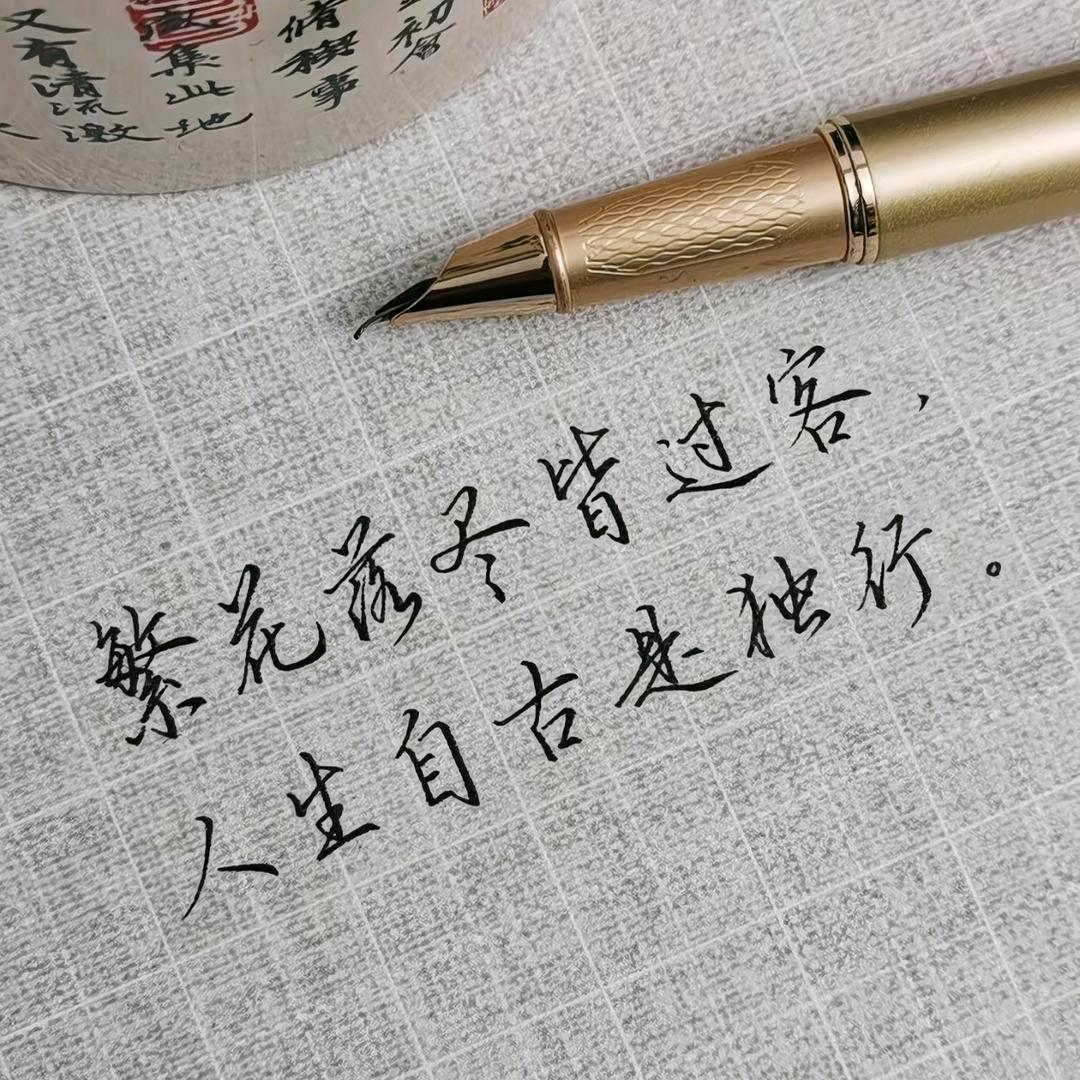 初會
脩禊事
咸集此地
又有清流激
繁花落尽皆过客，
人生自古是独行。